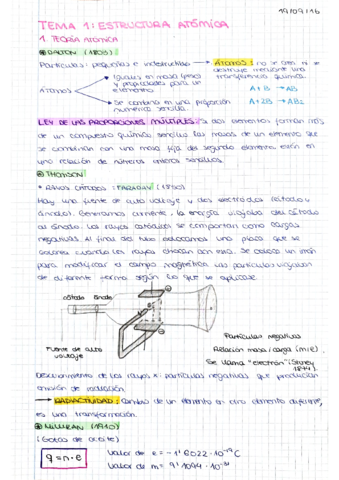 19/09/16
TEMA 1: ESTRUCTURA ATÓMICA
1. TEORÍA ATÓMICA
DALTON (1808)
Partículas: pequeñas e indestructibles → ÁTOMOS: no se crea ni se
destruye mediante una
transferencia química.
Átomos
Iguales en masa (peso)
y propiedades para un
elemento
A + B → AB
Se combina en una proporción
numérica sencilla.
A + 2B → AB2
LEY DE LAS PROPORCIONES MÚLTIPLES: Si dos elementos forman más
de un compuesto químico sencillo las masas de un elemento que
se combinan con una masa fija del segundo elemento, están en
una relación de números enteros sencillos.
THOMSON
* RAYOS CATÓDICOS: FARADAY (1850)
Hay una fuente de alto voltaje y dos electrodos (cátodo y
ánodo). Generamos corriente, la energía viajaba del cátodo
al ánodo. Los rayos catódicos se comportan como cargas
negativas. Al final del tubo colocamos una placa que se
colorea cuando los rayos chocan con esta. Se coloca un imán
para modificar el campo magnético. Las partículas viajaban
de diferente forma según lo que se aplicase.
cátodo ánodo
Fuente de alto
voltaje
Partículas negativas
Relación masa/carga (m/e).
Se llama "electrón" (Stoney
1874).
Descubrimiento de los rayos X: partículas negativas que producían
emisión de radiación.
→ RADIACTIVIDAD: Cambio de un elemento en otro elemento diferente,
es una transformación.
MILLIKAN (1910)
(Gotas de aceite)
q = n · e
Valor de e = -1'6022 · 10-19 C
Valor de m = 9'1094 · 10-31